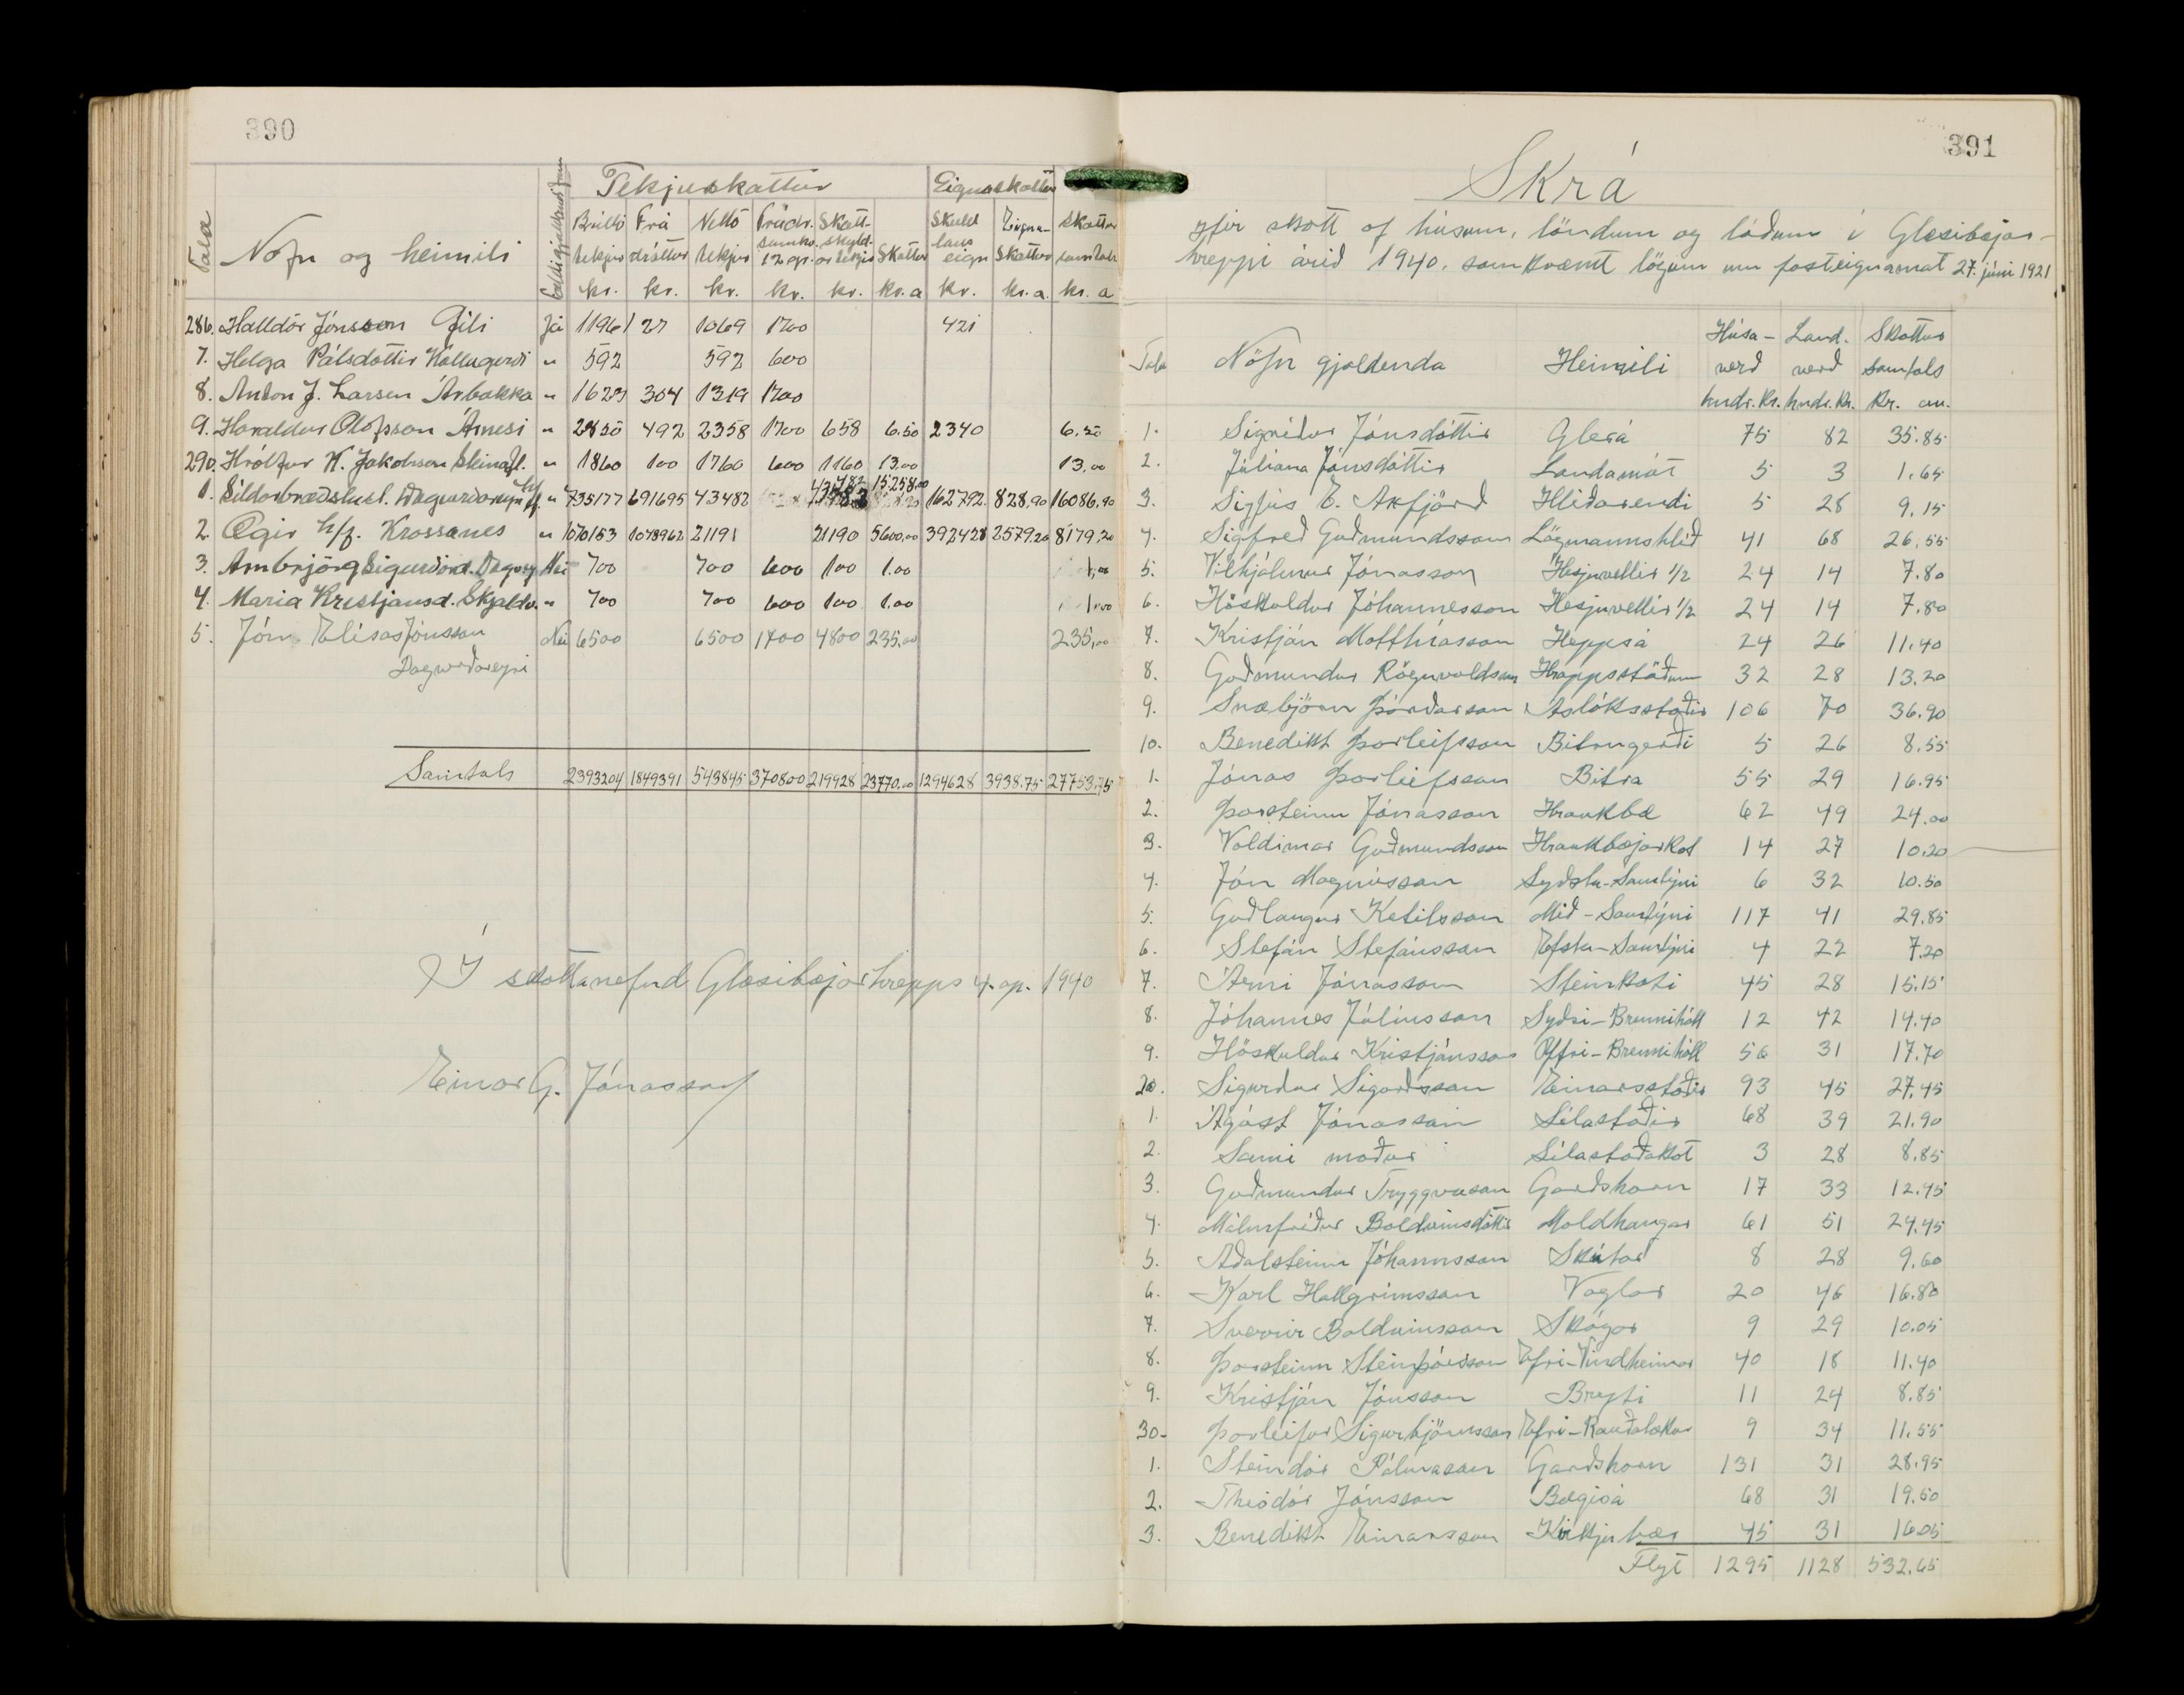 390
Tala Nöfn og heimili Tekjuskattur Eignaskattur
Brúttó tekjur kr. Frádráttur kr. Nettó tekjur kr. Frádr. samkv. 12 gr. kr. Skattskyldar tekjur kr. Skattur kr. a Skuldlaus eign kr. Eigna-skattur kr. a. Skattur samtals kr. a
286. Halldór Jónsson Gili Já 1196 127 1069 1700 421
7. Helga Pálsdóttir Kollugerði " 592 592 600
8. Anton J. Larsen Árbakka " 1623 304 1319 1700
9. Haraldur Ólafsson Árnesi " 2850 492 2358 1700 658 6.50 2340 6.50
290. Hrólfur K. Jakobsson Steinafl. " 1860 100 1760 600 1160 13.00 13.00
1. Síldarbræðslust. Dagverðareyri h/f. " 735177 691695 43482 43482 15258.00 162792. 828,90 16086,90
2. Ægir h/f. Krossanes " 1070153 1048962 21191 21190 5600,00 392428 2579,20 8179,20
3. Ambrjörg Sigurðard. Dagvey Nei 700 700 600 100 1.00 1,00
4. Maria Kristjansd. Skjaldv. " 700 700 600 100 1.00 1.00
5. Jón Elías Jónsson Nei 6500 6500 1700 4800 235,00 235,00
Dagverðareyri
Samtals 2393204 1849391 543845 370800 219928 23770.00 1294628 3938.75 27753,75
Í skattanefnd Glæsibæjarhrepps 4. ap. 1940
Einar G. Jónasson
391
Skrá
yfir skatt af húsum, löndum og lóðum í Glæsibæjar-
hreppi árið 1940. samkvæmt lögum um fasteignamat 27. júní 1921
Tala Nöfn gjaldenda Heimili Húsa-verð hndr. Kr. Land-verð hndr. Kr. Skattur samtals Kr. au.
1. Sigríður Jónsdóttir Glerá 75 82 35.85
2. Júliana Jónsdóttir Landamót 5 3 1.65
3. Sigfús E. Axfjörð Hlíðarendi 5 28 9.15
4. Sigfreð Guðmundsson Lögmannshlíð 41 68 26.55
5. Vilhjálmur Jónasson Hesjuvellir 1/2 24 14 7.80
6. Höskuldur Jóhannesson Hesjuvellir 1/2 24 14 7.80
7. Kristján Matthíasson Heppsá 24 26 11.40
8. Guðmundur Rögnvaldsson Hrappsstöðum 32 28 13.20
9. Snæbjörn Þórðarson Ásláksstaðir 106 70 36.90
10. Benedikt Þorleifsson Bitrugerði 5 26 8.55
1. Jónas Þorleifsson Bitra 55 29 16.95
2. Þorsteinn Jónasson Hraukbæ 62 49 24.00
3. Valdimar Guðmundsson Hraukbæjarkot 14 27 10.20
4. Jón Magnússon Syðsta-Samtýni 6 32 10.50
5. Guðlaugur Ketilsson Mið-Samtýni 117 41 29.85
6. Stefán Stefánsson Efsta-Samtýni 4 22 7.20
7. Árni Jónasson Steinkoti 45 28 15.15
8. Jóhannes Júlíusson Syðri-Brennihóll 12 42 14.40
9. Höskuldur Kristjánsson Ytri-Brennihóll 56 31 17.70
20. Sigurður Sigurðsson Einarsstaðir 93 45 27.45
1. Ágúst Jónasson Sílastaðir 68 39 21.90
2. Sami maður Sílastaðakot 3 28 8.85
3. Guðmundur Tryggvason Garðshorn 17 33 12.45
4. Málmfríður Baldvinsdóttir Moldhaugar 61 51 24.45
5. Aðalsteinn Jóhannsson Skútar 8 28 9.60
6. Karl Hallgrímsson Vaglar 20 46 16.80
7. Sverrir Baldvinsson Skógar 9 29 10.05
8. Þorsteinn Steinþórsson Efri-Vindheimar 40 18 11.40
9. Kristján Jónsson Bryti 11 24 8.85
30. Þorleifur Sigurbjörnsson Efri-Rauðalækur 9 34 11.55
1. Steindór Pálmason Garðshorn 131 31 28.95
2. Theódór Jónsson Bægisá 68 31 19.50
3. Benedikt Einarsson Kirkjubær 45 31 16.05
Flyt 1295 1128 532.65